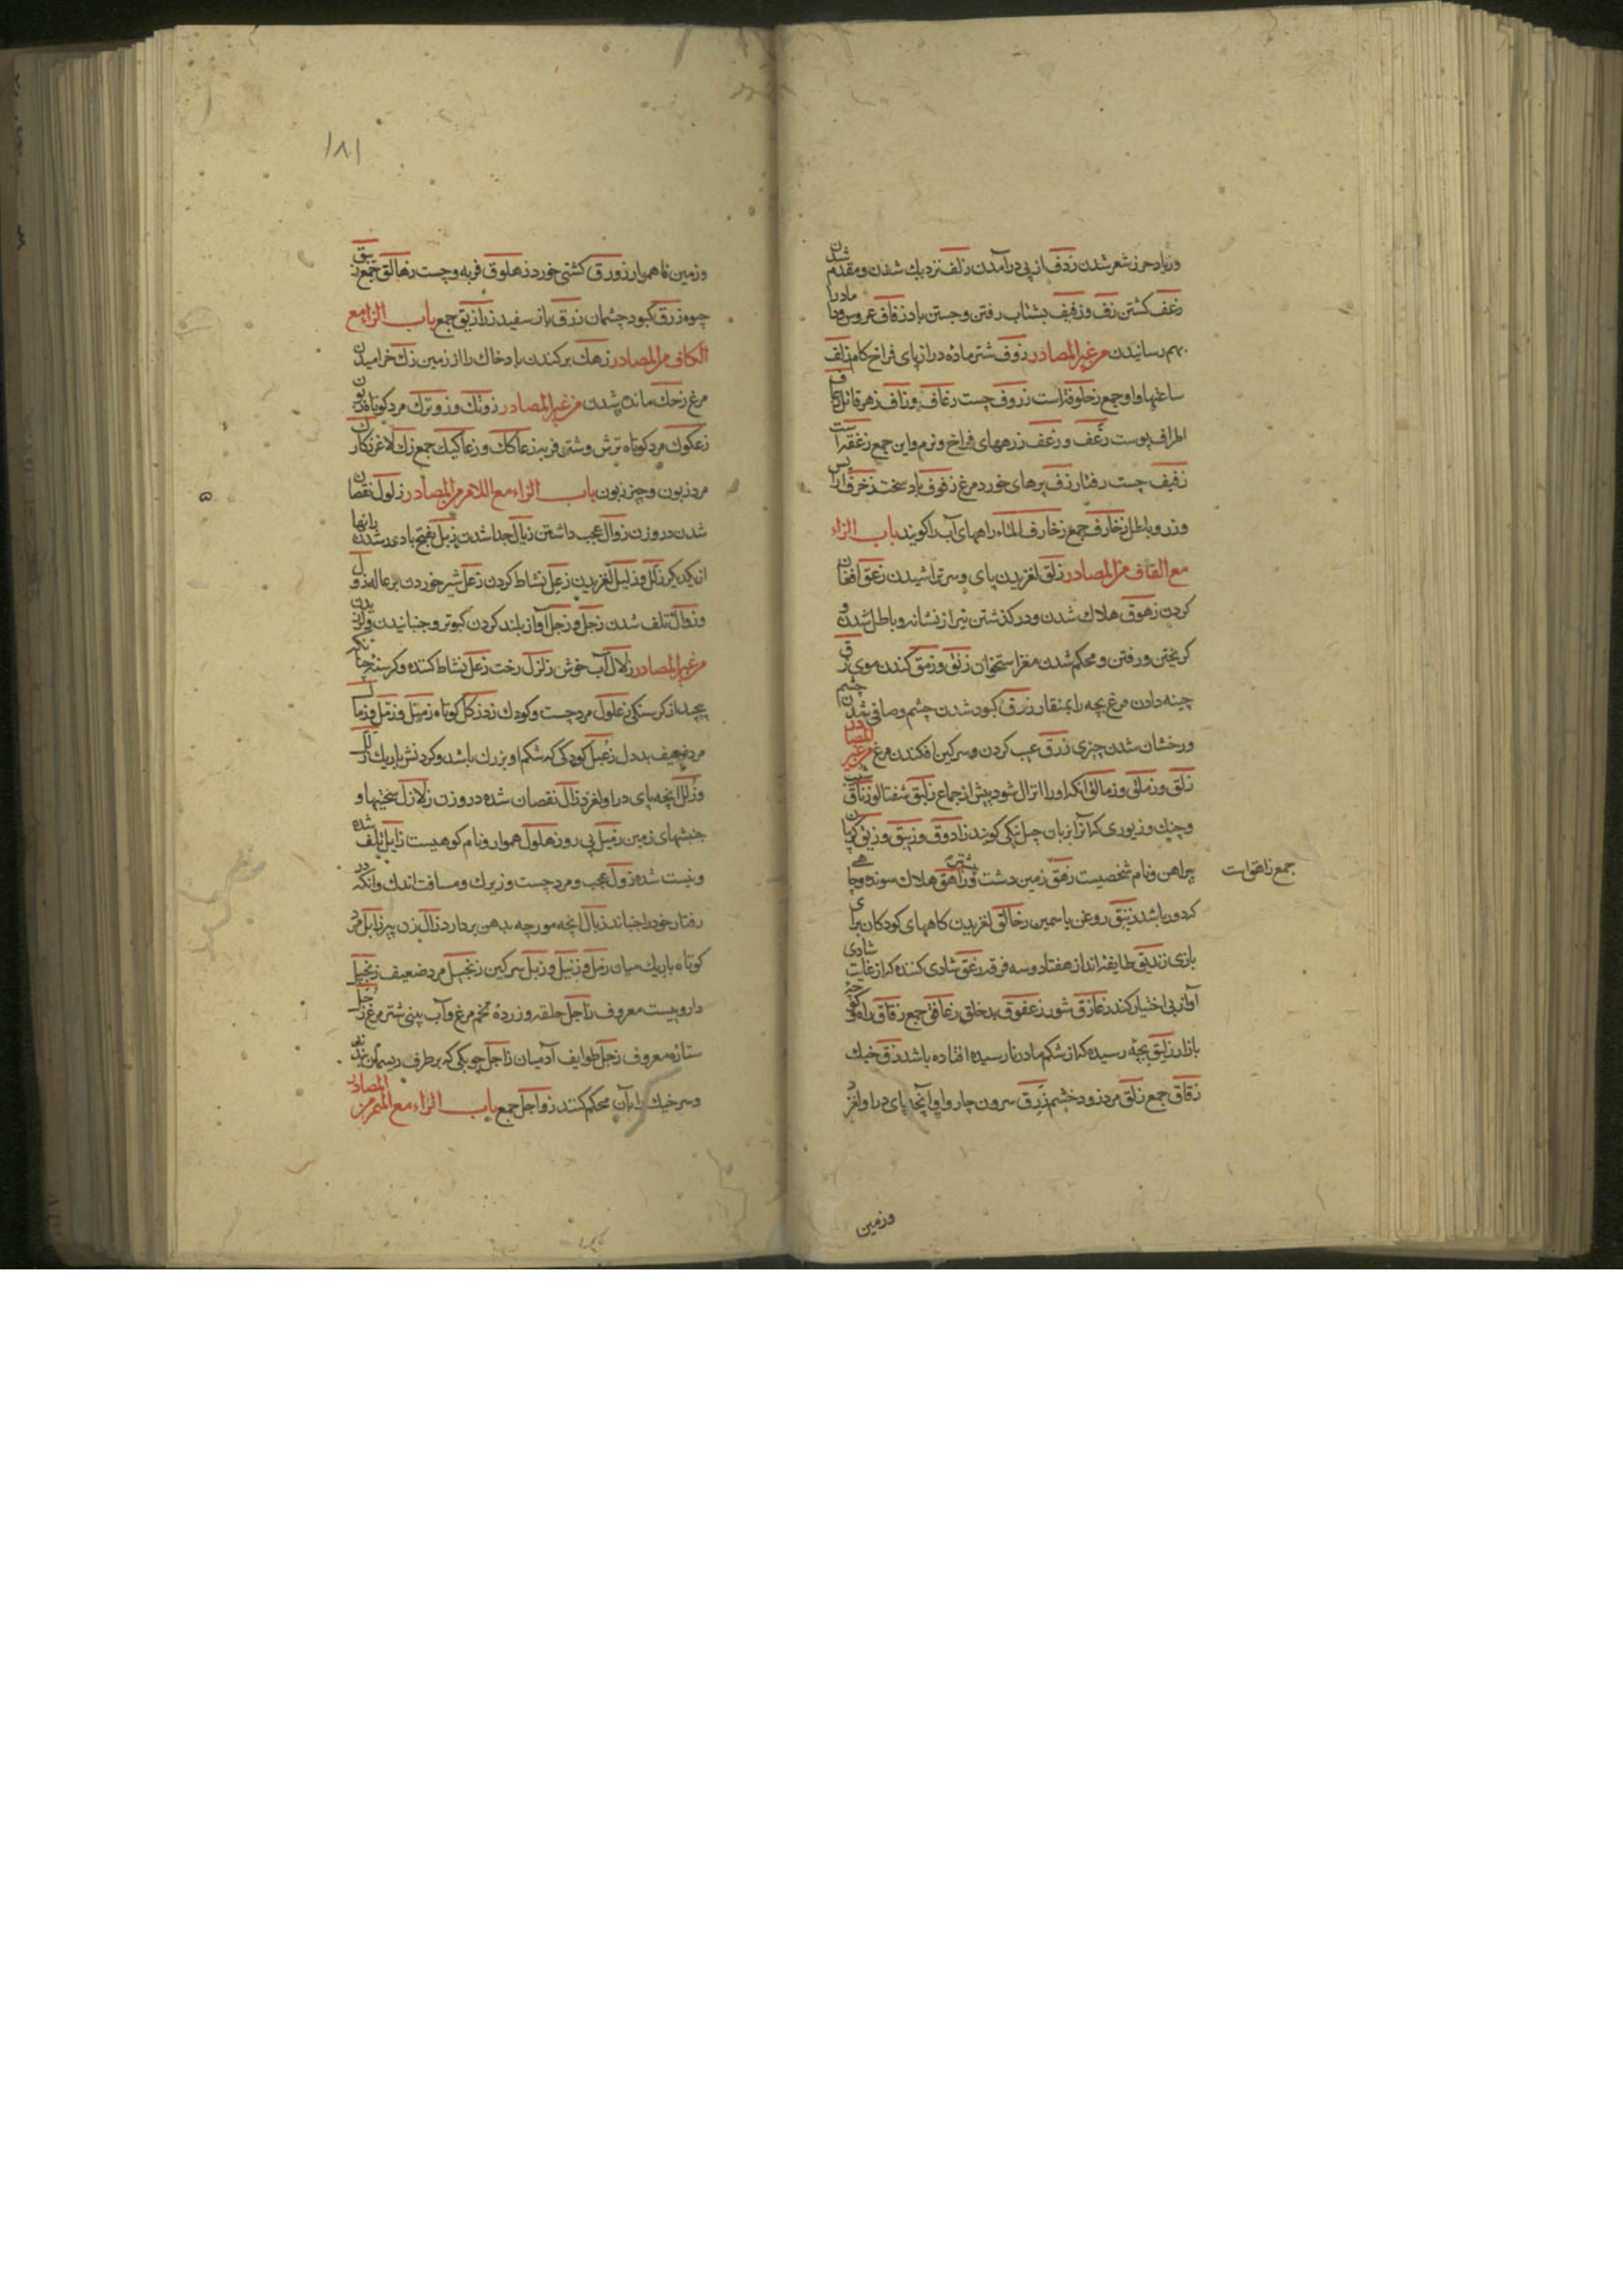 وزیاد حرز شعر شدن زدف از پی درآمدن زلف نزدیك شدن ومقدم شدن
زعف کشتن زف وزفیف بشتاب رفتن وجستن باد زفاف عروس ودا مادرا
بهم رسانیدن من غیر المصادر زوف شتر ماده دراز پای فراخ کام زلف
ساعتها واو جمع زلفة است زروف چست زعاف وزاف زهر قاتل
اطراف پوست زغف وزغف زرههای فراخ ونرم واین جمع زغفة است
زفیف چست رفتار زف پرهای خورد مرغ زفوف باد سخت زخرف آرایس
وزر وباطل زخارف جمع زخارف الماء راههای آب را کویند باب الزاء
مع القاف من المصادر زلق لغزیدن پای وسر تراشیدن زعق افغان
کردن زهوق هلاك شدن ودرکذشتن تیر از نشانه وباطل شدن و
کریختن ورفتن ومحکم شدن مغز استخوان زلق وزمق کندن موی زق
چینه دادن مرغ بچه را بمنقار زرق کبود شدن چشم وصافی شدن چشم
ودرخشان شدن چیزی زرق عیب کردن وسرکین افکندن مرغ من غیر المصادر
زلق وزملق وزمالق انکه اورا انزال شود پیش از جماع زلیق شفتالو زناق
وچنك وزیوری که آنرا بزبان چپلنکی کویند زاووق وزیبق وزیق کریبان
پیراهن ونام شخصیت زهق زمین دشت وزاهق هلاك سونده وچاهی
جمع زاهق است
که دور باشد زنبق روغن یاسمین زحالق لغزیدن کاههای کودکان برای
بازی زندیق طایفه اند از هفتاد وسه فرقه زعق شادی کننده که از غایت شادی
آواز بی اختیار کند زعازق شور زعفوق بدخلق زعافق جمع زقاق راه کوچه
بازار زلیق بچهٔ رسیده که از شکم مادر نارسیده افتاده باشد زق خیك
زقاق جمع زلق مرد زود خشم زلق سرون چاروا وآنجه پای درا ولغزد
وزمین
۱۸۱
وزمین ناهموار زورق کشتی خورد زهلوق فربه وچست زهالق جمع زیبق
جیوه زرق کبود چشمان زرق باز سفید زرازیق جمع باب الزاء مع
الکاف من المصادر زهك برکندن باد خاك را از زمین زك خرامیدن
مرغ زحك مانده شدن من غیر المصادر زونك وزوترك مرد کوتاه
زعکوك مرد کوتاه ترش وشتر فربه زعاکك وزعاکیك جمع زك لاغر
مرد زبون وچیز زبون باب الزاء مع اللام من المصادر زلول نقصان
شدن در وزن زوال عجب داشتن زیال جدا شدن زبل بفتح با دور شدن
از یکدیکر زلل وزلیل لغزیدن زعل نشاط کردن زغل شیر خوردن بزغاله زول
وزوال تلف شدن زجل وزجل آواز بلند کردن کبوتر وجنبانیدن
من غیر المصادر زلال آب خوش زلزل رخت زعل نشاط کننده وکرسنه
پیچد از کرسنکی زعلول مرد چست وکودك زونزکل کوتاه زمیل وزمل وزمال
مرد ضعیف بددل زعبل کودکی که شکم او بزرك باشد وکردنش باریك زلل
وزلل آنچه پای درا ولغزد زال نقصان شده در وزن زلازل سختیها و
جنبشهای زمین زمیل پی رو زهلول هموار ونام کوهیست زایل تلف شده
ونیست شده زول عجب ومرد چست وزیرك ومسافت اندك وانکه در
رفتار خود را جنباند زبال آنچه مورچه بدهن بردارد زال زن پیر زابل مرد
کوتاه باریك میان زمل وزنبیل وزبل سرکین زنجبیل مرد ضعیف زنجبیل
داروییست معروف زاجل حلقه وزردهٔ تخم مرغ وآب پینی شتر مرغ زحل
ستارهٔ معروف زجل طوایف آدمیان زاجل چوبکی که بر طرف ریسمان
وسر خیك را بآن محکم کنند زواجل جمع باب الزاء مع المیم من المصادر